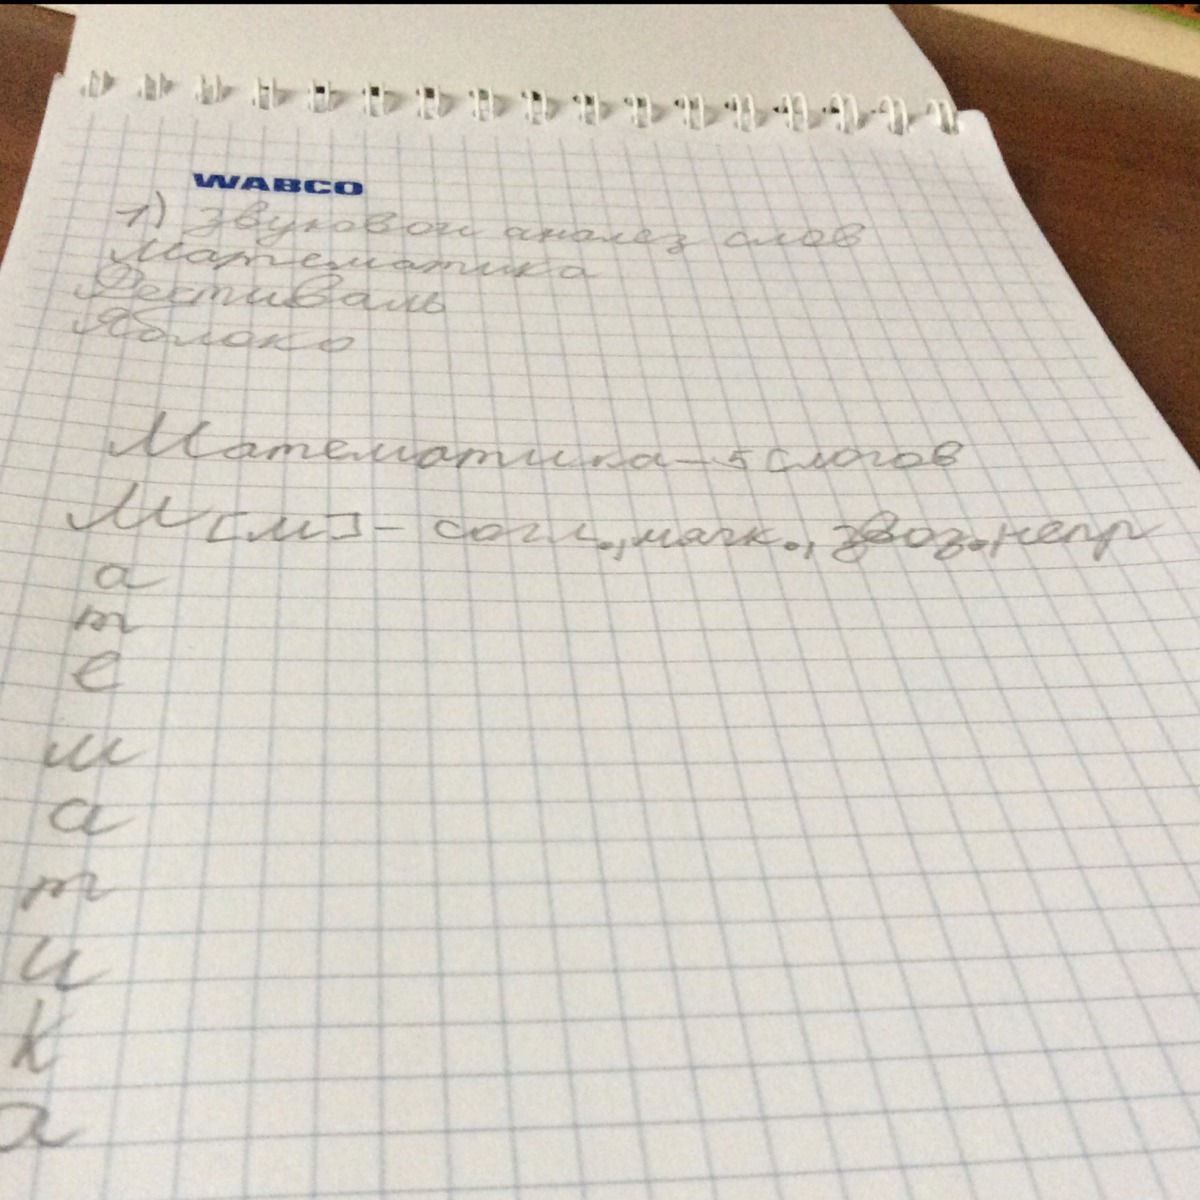 WABCO
1) Звуковой анолез слов
Математика
Фестиваль
Яблоко
Математика - 5 слогов
М [м] - согл., мягк., звоз., непр
а
т
е
м
а
т
и
к
а